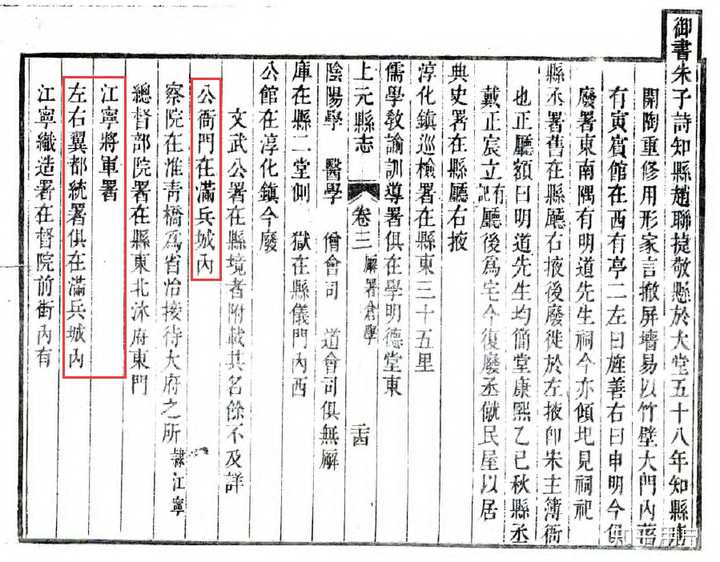 御書朱子詩知縣趙聯捷敬懸於大堂五十八年知縣唐
開陶重修用形家言撤屏墻易以竹壁大門內舊
有寅賓館在西有亭二左曰旌善右曰申明今俱
廢署東南隅有明道先生祠今亦傾圮見祠祀
縣丞署舊在縣廳右掖後廢徙於左掖卽朱主簿衙
也正廳額曰明道先生均簡堂康熙乙巳秋縣丞
戴正宸立有記廳後為宅今復廢丞僦民屋以居
典史署在縣廳右掖
淳化鎮巡檢署在縣東三十五里
儒學敎諭訓導署俱在學明德堂東
上元縣志 卷三 廨署倉學
陰陽學 醫學 僧會司 道會司俱無廨
庫在縣二堂側 獄在縣儀門內西
公館在淳化鎮今廢
文武公署在縣境者附載其名餘不及詳
公衙門在滿兵城內
察院在淮青橋為省治接待大府之所 隸江寧
總督部院署在縣東北泳府東門
江寧將軍署
左右翼都統署俱在滿兵城內
江寧織造署在督院前街內有